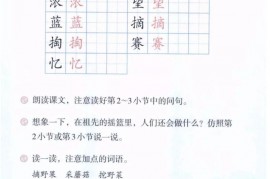 浓 浓 望 望
蓝 蓝 摘 摘
掏 掏 赛 赛
忆 忆
朗读课文，注意读好第2~3小节中的问句。
想象一下，在祖先的摇篮里，人们还会做什么？仿照第
2小节或第3小节说一说。
读一读，注意加点的词语。
摘野果 采蘑菇 挖野菜